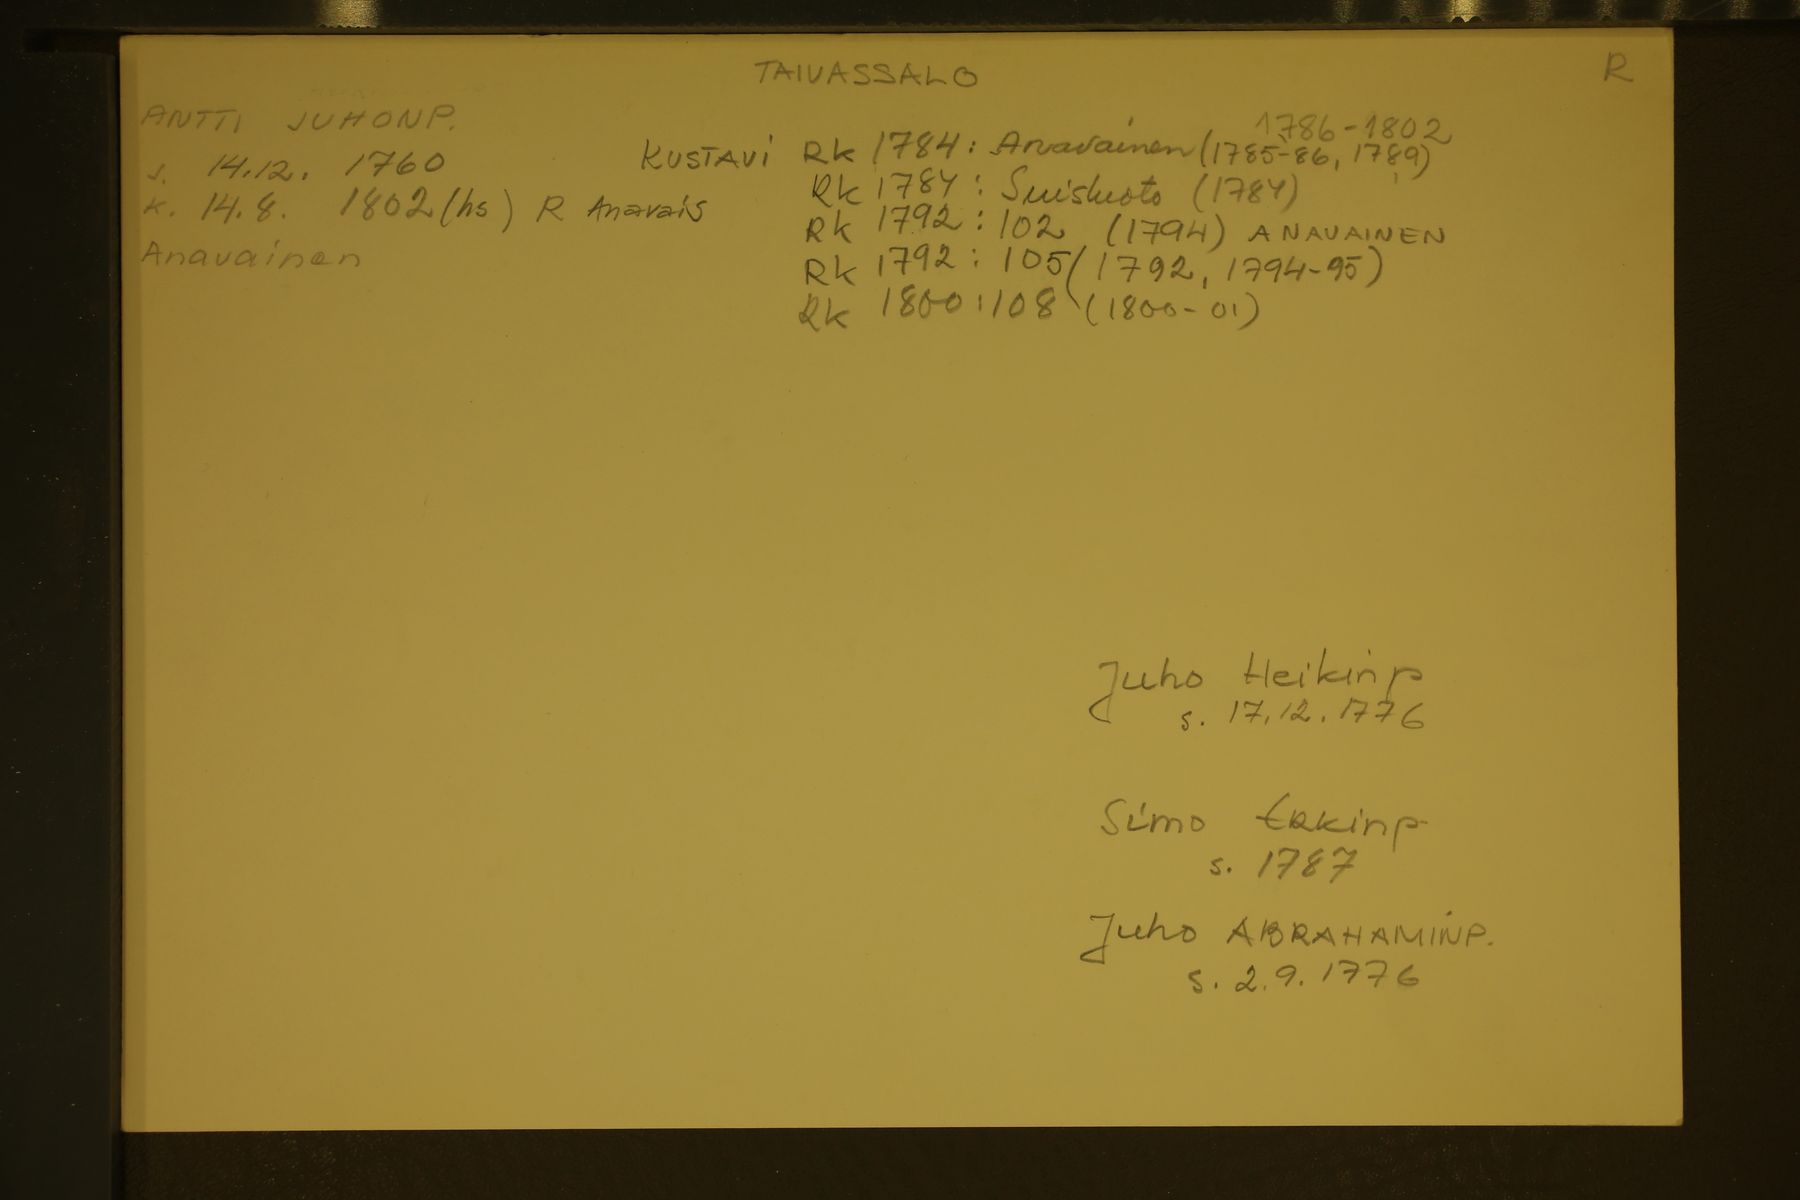 TAIVASSALO
R
ANTTI JUHONP.
s. 14.12. 1760
k. 14.8. 1802 (hs) R Anavais
Anavainen
1786-1802
KUSTAVI RK 1784: Anavainen (1785-86, 1789)
RK 1784: (1784)
RK 1792: 102 (1794) ANAVAINEN
RK 1792: 105 (1792, 1794-95)
RK 1800:108 (1800-01)
Juho Heikinp
s. 17.12.1776
Simo Erkinp
s. 1787
Juho ABRAHAMINP.
s. 2.9.1776